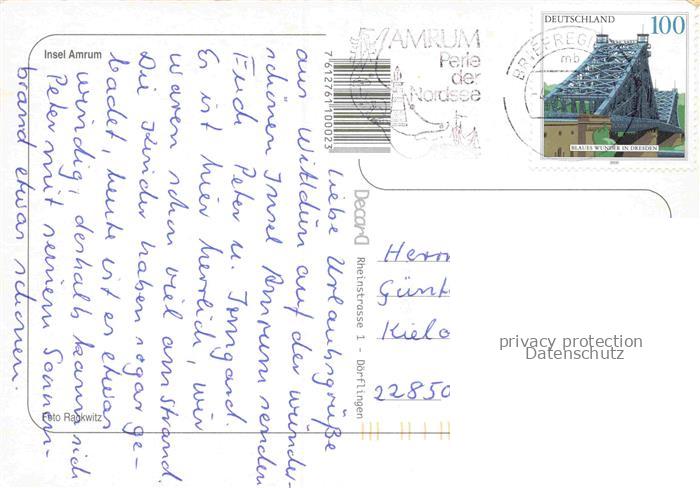 Insel Amrum
Liebe Urlaubsgrüße
aus Wittdün auf der wunder-
schönen Insel Amrum senden
Euch Peter u. Irmgard.
Es ist hier herrlich, wir
waren schon viel am Strand.
Die Kinder haben sogar ge-
badet, heute ist es etwas
windig, deshalb kann sich
Peter mit seinem Sonnen-
brand etwas schonen.
Foto Rackwitz
7 612761 100023
Decard
Rheinstrasse 1 - Dörflingen
AMRUM
Perle
der
Nordsee
BRIEFREGI
mb
DEUTSCHLAND
100
BLAUES WUNDER IN DRESDEN
2000
Herrn
Günt
Kiel
22850
privacy protection
Datenschutz